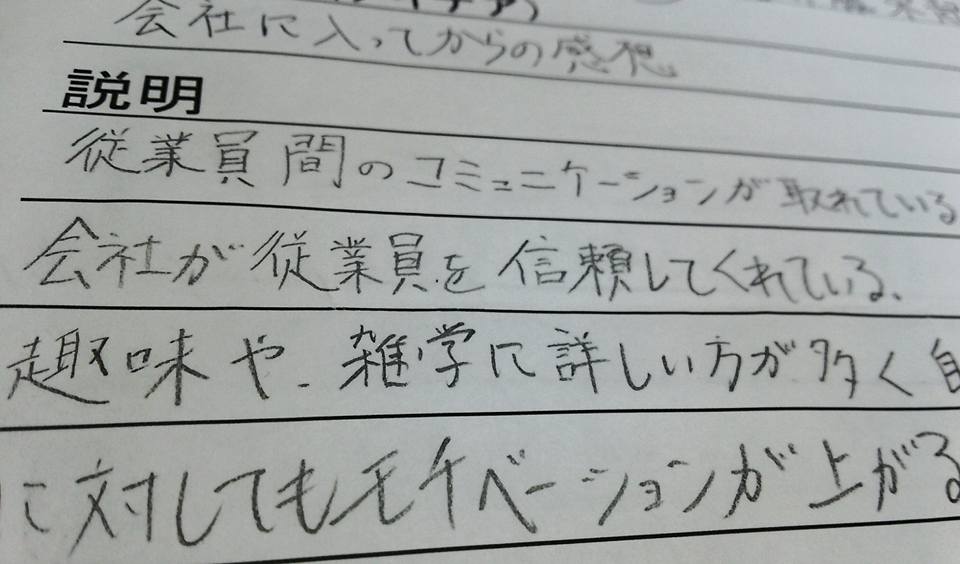 会社に入ってからの感想
説明
従業員間のコミュニケーションが取れている
会社が従業員を信頼してくれている、
趣味や、雑学に詳しい方が多く自
に対してもモチベーションが上がる